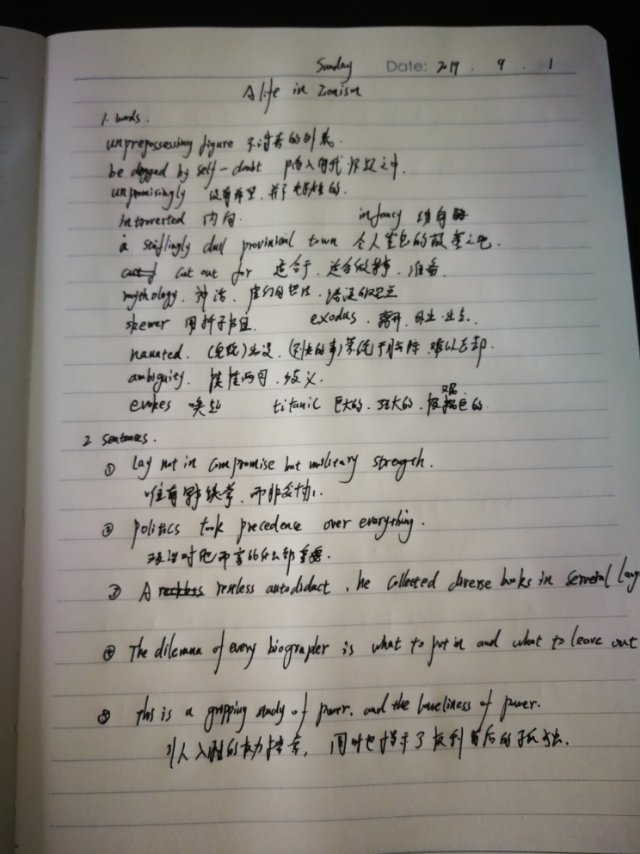 Sunday Date: 2019 . 9 . 1
A life in Zionism
1. words.
unprepossessing figure 不讨喜的
be dogged by self-doubt 陷入自我怀疑之中.
unpromisingly 没有希望.
introverted 内向 infancy 幼年
a stiflingly dull provincial town 令人窒息的
cut out for 适合于. 适合做某事. 准备
mythology. 神话.
skewer 用扦子串住 exodus. 离开.
haunted. 难以忘却.
ambiguity. 模棱两可. 歧义.
evokes 唤起 titanic 巨大的. 强大的.
2 sentences.
① lay not in compromise but military strength.
唯有 而非妥协.
② politics took precedence over everything.
政治对他而言比什么都重要.
③ A restless autodidact, he collected diverse books in several lang
④ The dilemma of every biographer is what to put in and what to leave out
⑤ This is a gripping study of power. and the loneliness of power.
引人入胜的权力探索, 同时也探寻了权利背后的孤独.